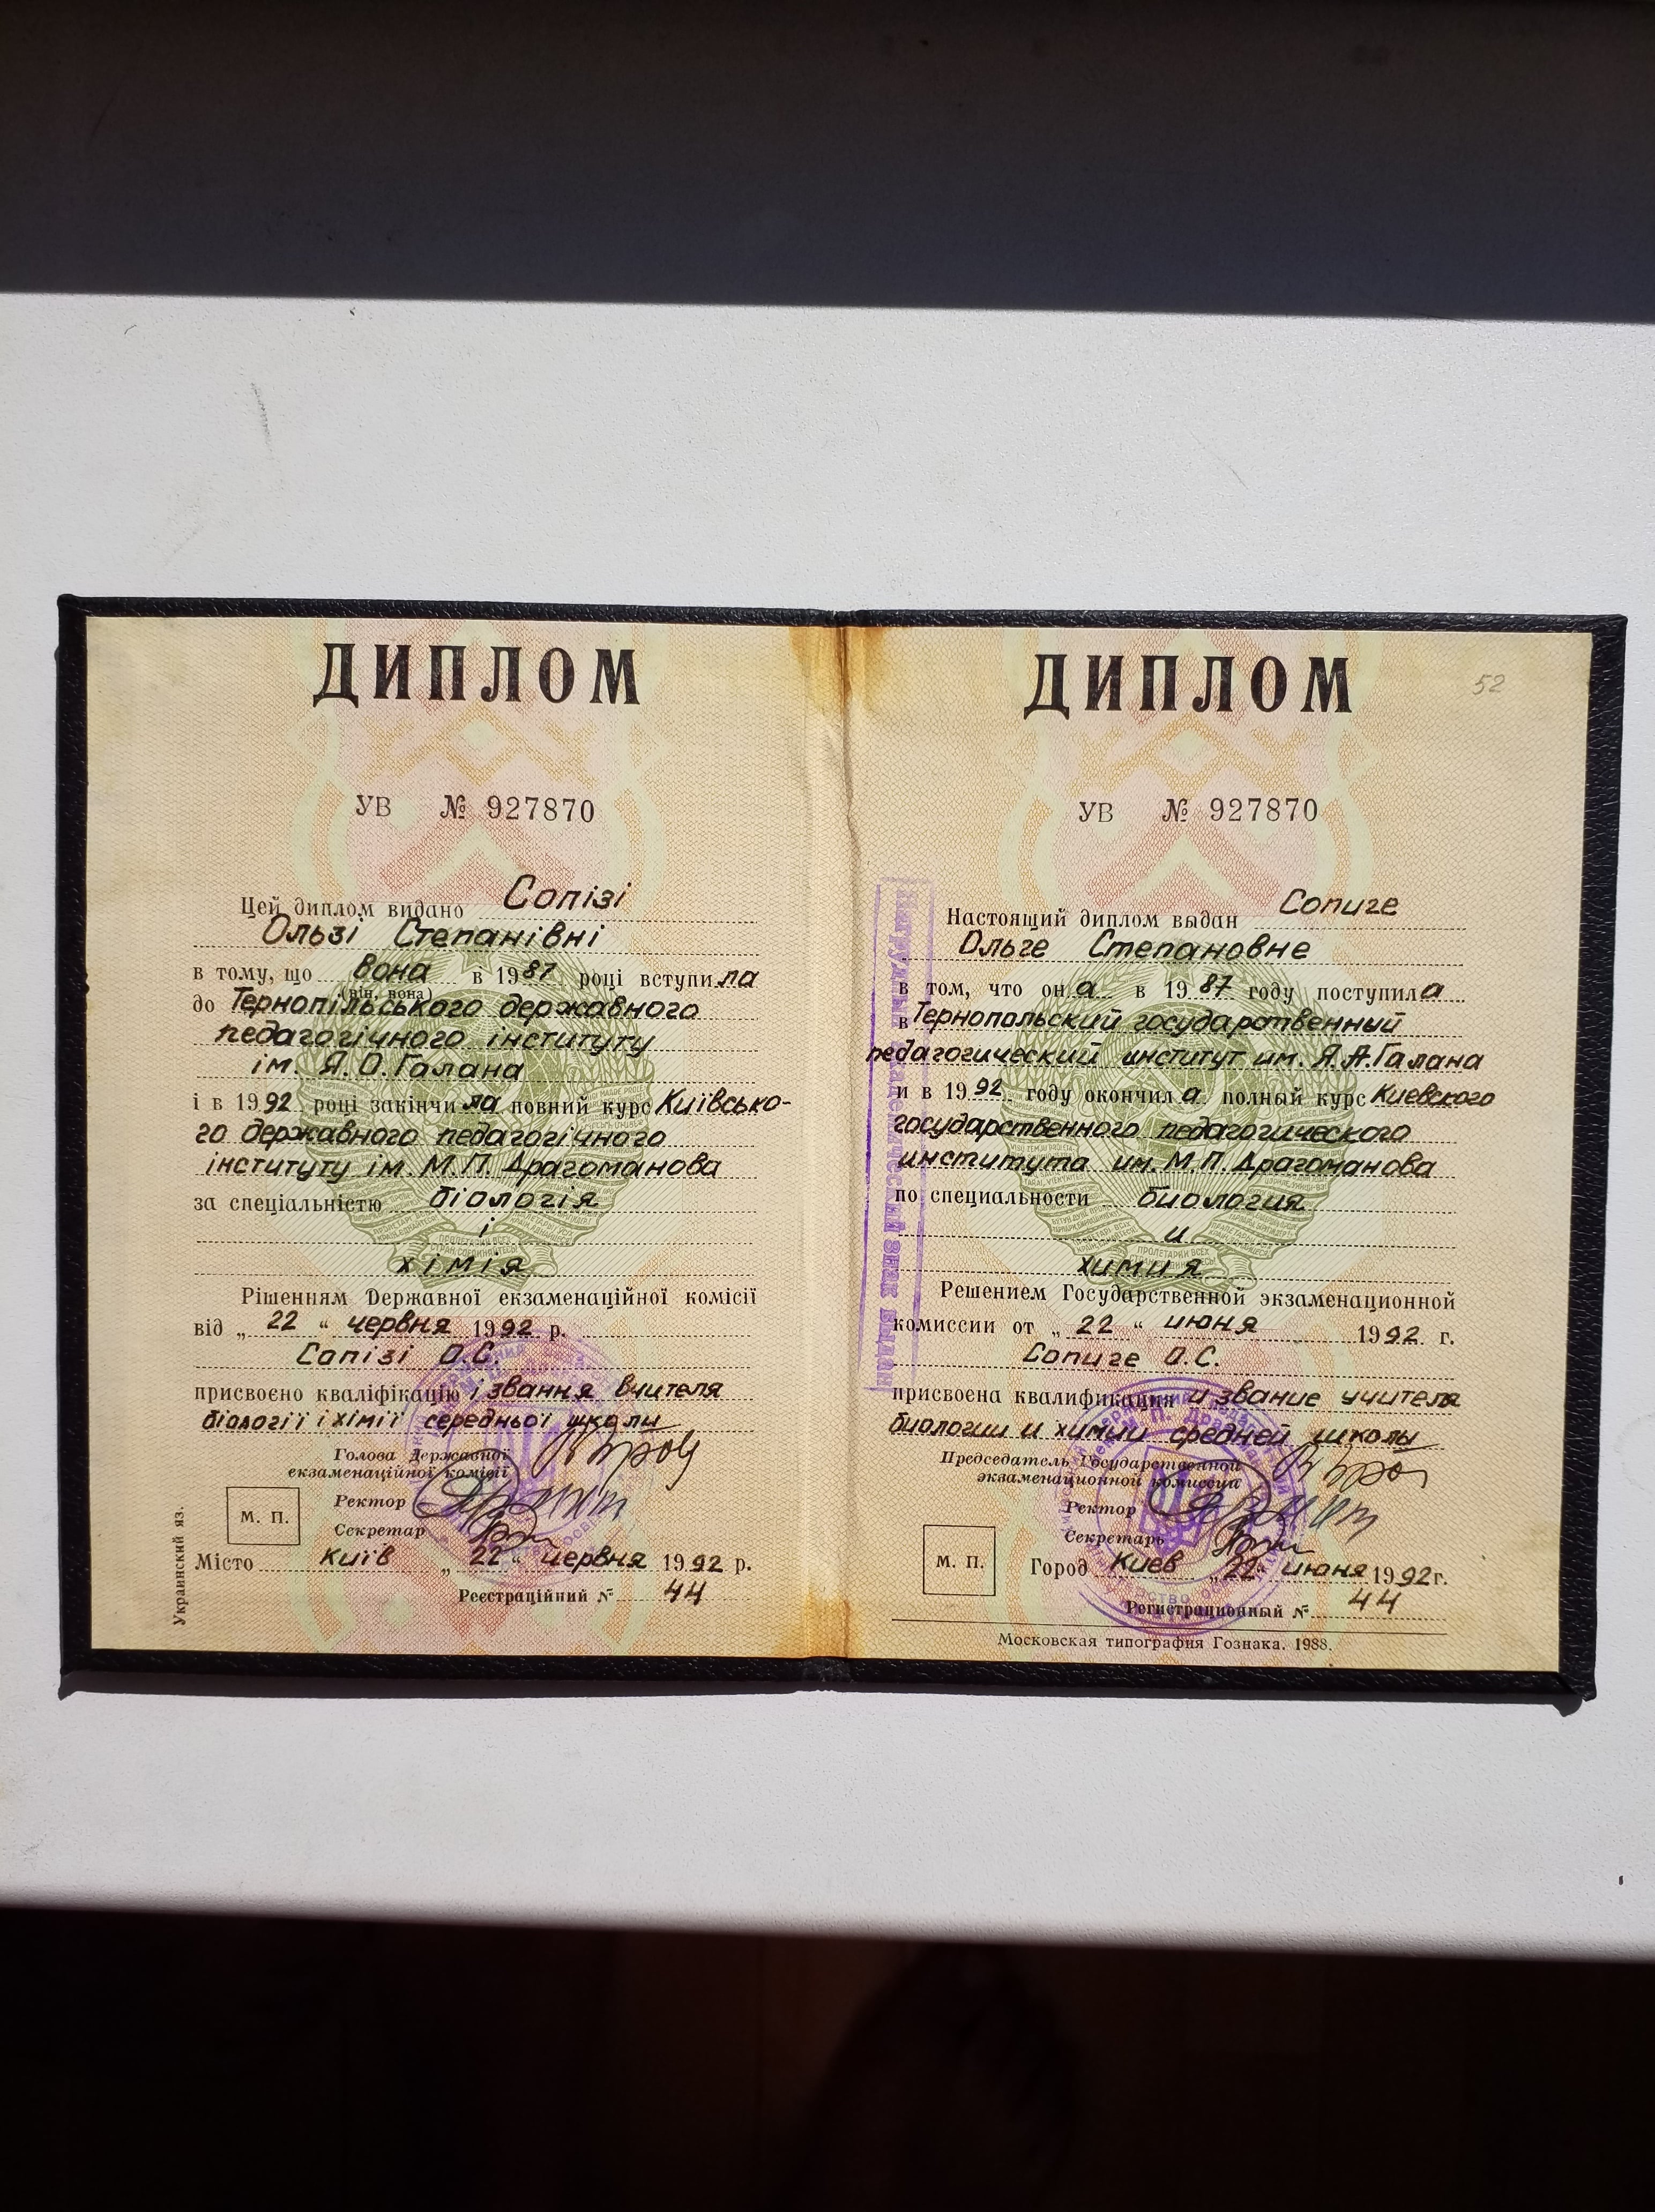 ДИПЛОМ
УВ № 927870
Цей диплом видано Сопізі
Ользі Степанівні
в тому, що вона в 1987 році вступила
(він, вона)
до Тернопільського державного
педагогічного інституту
ім. Я.О.Галана
і в 1992 році закінчила повний курс Київсько-
го державного педагогічного
інституту ім. М.П. Драгоманова
за спеціальністю біологія
і
хімія
Рішенням Державної екзаменаційної комісії
від „22“ червня 1992 р.
Сопізі О.С.
присвоєно кваліфікацію і звання вчителя
біології і хімії середньої школи
Голова Державної
екзаменаційної комісії
Ректор
М. П.
Секретар
Місто Київ „22“ червня 1992 р.
Реєстраційний № 44
Украинский яз.
ДИПЛОМ
52
УВ № 927870
Настоящий диплом выдан Сопиге
Ольге Степановне
в том, что она в 1987 году поступила
в Тернопольский государственный
педагогический институт им. Я.А.Галана
и в 1992 году окончила полный курс Киевского
государственного педагогического
института им. М.П. Драгоманова
по специальности биология
и
химия
Решением Государственной экзаменационной
комиссии от „22“ июня 1992 г.
Сопиге О.С.
присвоена квалификация и звание учителя
биологии и химии средней школы
Председатель Государственной
экзаменационной комиссии
Ректор
Секретарь
М. П.
Город Киев „22“ июня 1992г.
Регистрационный № 44
Московская типография Гознака. 1988.
Нагрудный академический знак выдан
ПРОЛЕТАРИИ ВСЕХ
СТРАН, СОЕДИНЯЙТЕСЬ!